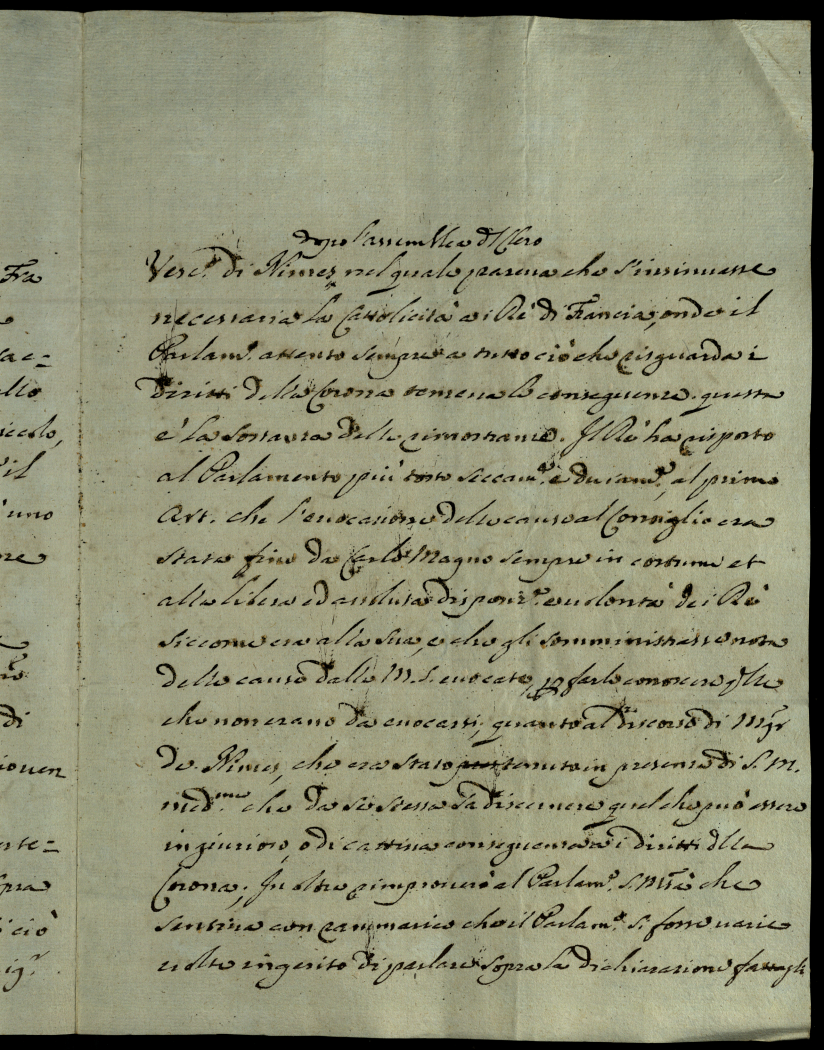 Fra
e
cac=
allo
siccolo,
il
uno
ne
di
ioven
erte=
opra
i ciò
ig.r
dopo l'assemblea d'l Clero
Vesc.o di Nimes, nel quale pareva che s'insinuasse
necessaria la Cattolicità a i Rè di Francia, onde il
Parlam.o attento sempre a tutto ciò che risguarda i
diritti della Corona temeva le conseguenze. questa
è la sostanza delle rimostranze. Il Rè ha risposto
al Parlamento più tosto seccam.e e duram.e, al primo
Art. che l'evocazione delle cause al Consiglio era
stata fino da Carlo Magno sempre in costume et
alla libera ed assoluta disposiz.e e volontà dei Rè
siccome era alla sua, e che gli somministrasse nota
delle cause dalla M. S. evocate, p farle conoscere q.lle
che non erano da evocarsi; quanto al discorso di Mgr
de Nimes, che era stato tenuto in presenza di S. M.
med.ma che da se stessa sà discernere quel che può essere
ingiurioso, o di cattiva conseguenza a i diritti d.lla
Corona; In oltre rimproverò al Parlam.o S. M.tà che
sentiva con rammarico che il Parlam.o si fosse varie
volte ingerito di parlare sopra la dichiarazione fattagli